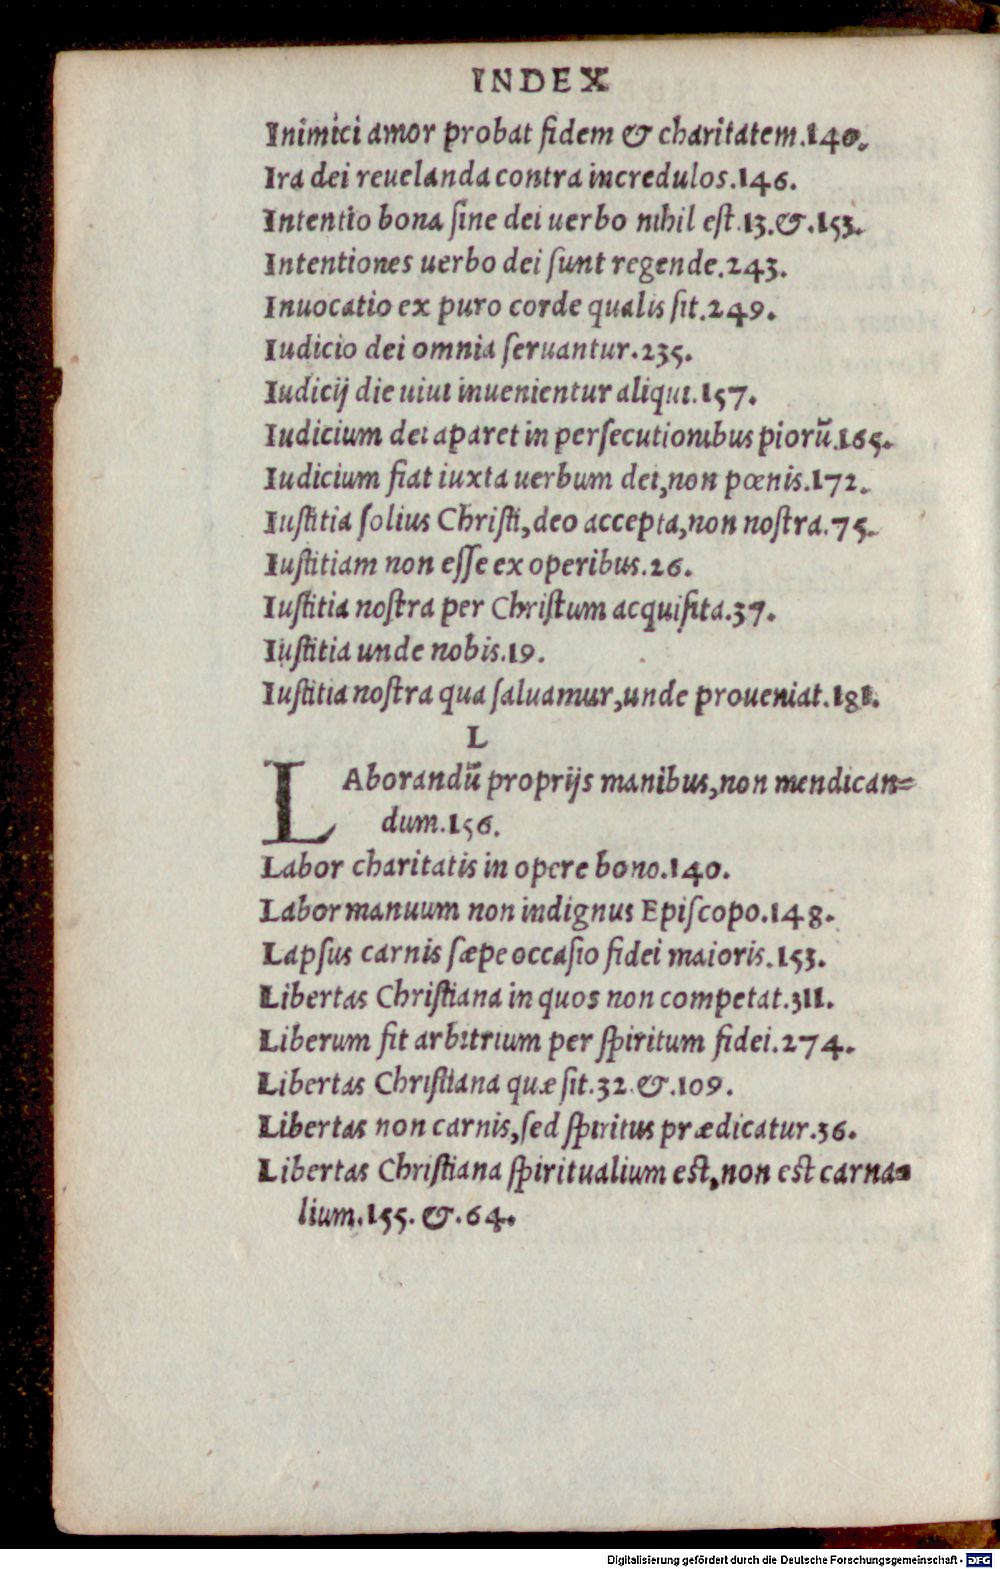 INDEX
Inimici amor probat fidem & charitatem.140.
Ira dei reuelanda contra incredulos.146.
Intentio bona ſine dei uerbo nihil eſt.13.&.153.
Intentiones uerbo dei ſunt regende.243.
Inuocatio ex puro corde qualis ſit.249.
Iudicio dei omnia ſeruantur.235.
Iudicij die uiui inuenientur aliqui.157.
Iudicium dei aparet in perſecutionibus piorū.165.
Iudicium fiat iuxta uerbum dei,non pœnis.172.
Iuſtitia ſolius Chriſti,deo accepta,non noſtra.75.
Iuſtitiam non eſſe ex operibus.26.
Iuſtitia noſtra per Chriſtum acquiſita.37.
Iuſtitia unde nobis.19.
Iuſtitia noſtra qua ſaluamur,unde proueniat.181.
L
LAborandū proprijs manibus,non mendican=
dum.156.
Labor charitatis in opere bono.140.
Labor manuum non indignus Epiſcopo.148.
Lapſus carnis ſæpe occaſio fidei maioris.153.
Libertas Chriſtiana in quos non competat.311.
Liberum fit arbitrium per ſpiritum fidei.274.
Libertas Chriſtiana quæ ſit.32.&.109.
Libertas non carnis,ſed ſpiritus prædicatur.36.
Libertas Chriſtiana ſpiritualium eſt,non eſt carna=
lium.155.&.64.
Digitalisierung gefördert durch die Deutsche Forschungsgemeinschaft - DFG